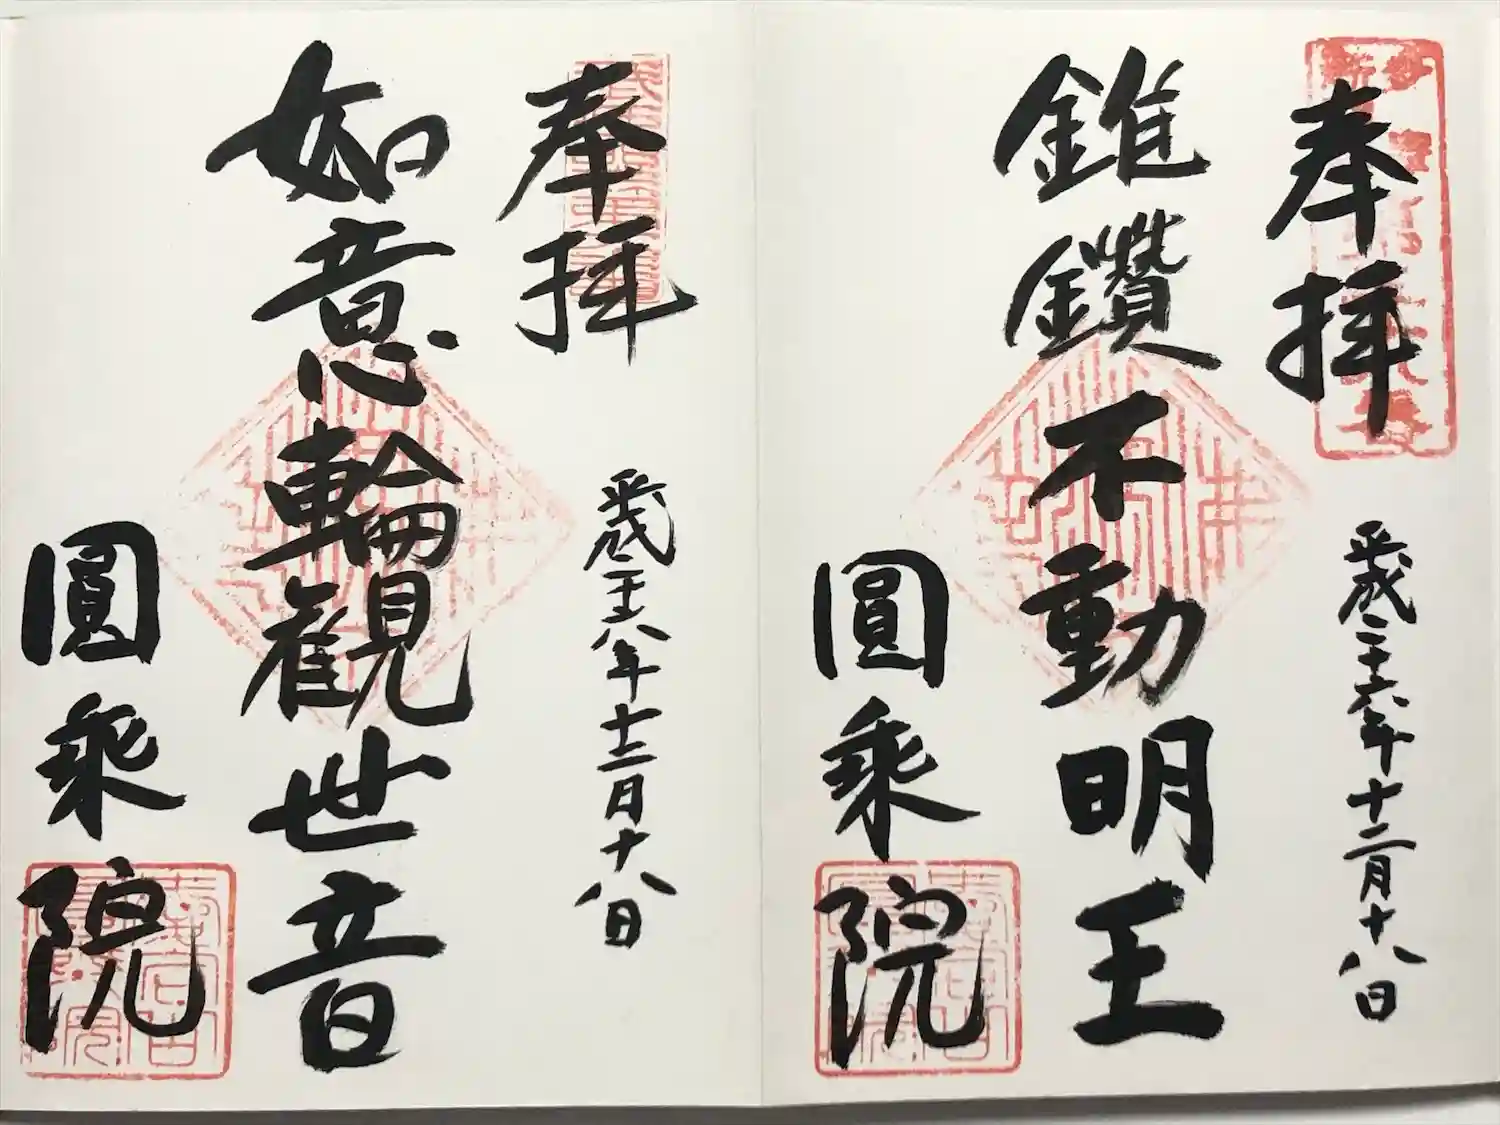 奉拝
平成二十六年十二月十八日
錐鑽不動明王
圓乗院
奉拝
平成二十八年十二月十八日
如意輪観世音
圓乗院